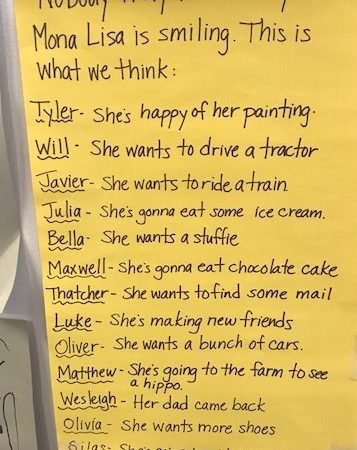 Mona Lisa is smiling. This is
What we think:
Tyler - She's happy of her painting.
Will - She wants to drive a tractor
Javier - She wants to ride a train
Julia - She's gonna eat some ice cream.
Bella - She wants a stuffie
Maxwell - She's gonna eat chocolate cake
Thatcher - She wants to find some mail
Luke - She's making new friends
Oliver - She wants a bunch of cars.
Matthew - She's going to the farm to see
a hippo.
Wesleigh - Her dad came back
Olivia - She wants more shoes